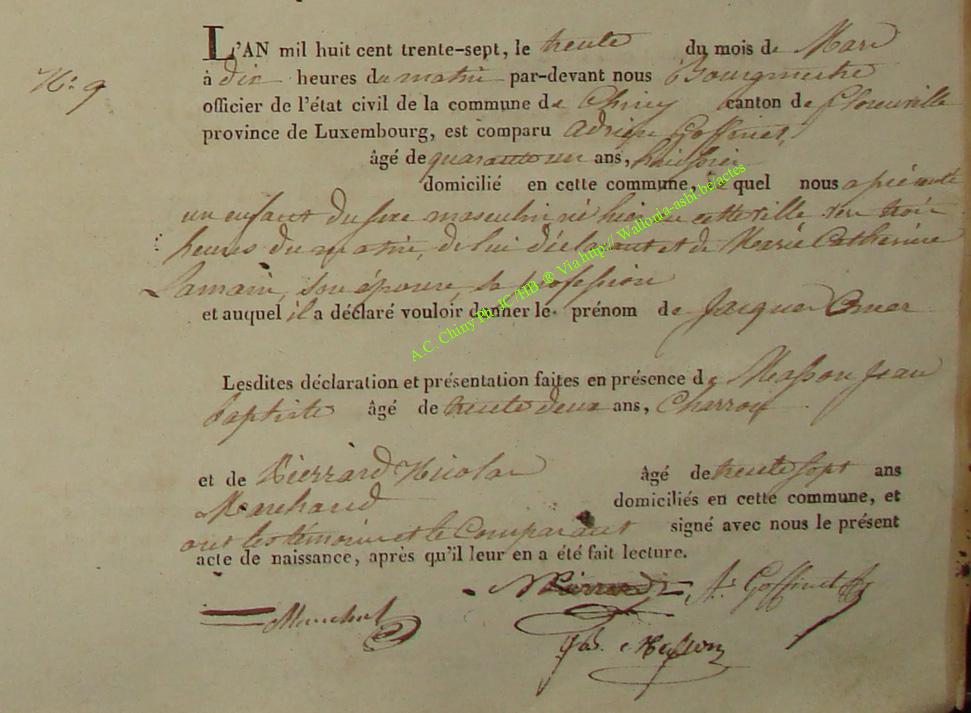 N.° 9
L'AN mil huit cent trente-sept, le trente du mois de Mars
à dix heures du matin par-devant nous Bourgmestre
officier de l'état civil de la commune de Chiny canton de Florenville
province de Luxembourg, est comparu Adrien Goffinet,
âgé de quarante un ans, huissier
domicilié en cette commune, lequel nous a présenté
un enfant du sexe masculin né hier en cette ville vers trois
heures du matin, de lui déclarant et de Marie Catherine
Lamain, son épouse, sa profession
et auquel il a déclaré vouloir donner le prénom de Jacques Omer
A.C. Chiny Ph. JC /HB ® Via http:// Wallonia-asbl be/actes
Lesdites déclaration et présentation faites en présence de Masson Jean
Baptiste âgé de trente deux ans, Charron
et de Pierrard Nicolas âgé de trente sept ans
Marchand domiciliés en cette commune, et
ont les témoins et le Comparant signé avec nous le présent
acte de naissance, après qu'il leur en a été fait lecture.
N Pierrard A. Goffinet
Marchal
JB. Masson